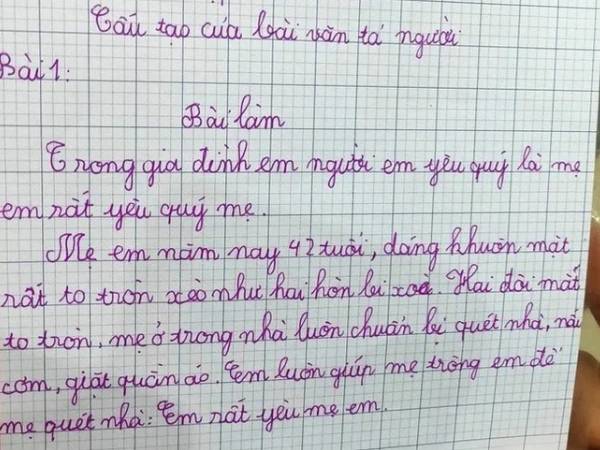 Cấu tạo của bài văn tả người
Bài 1:
Bài làm
Trong gia đình em người em yêu quý là mẹ
em rất yêu quý mẹ.
Mẹ em năm nay 42 tuổi, dáng khuôn mặt
rất to tròn xèo như hai hòn bi xoè. Hai đôi mắt
to tròn, mẹ ở trong nhà luôn chuẩn bị quét nhà, nấu
cơm, giặt quần áo. Em luôn giúp mẹ trông em để
mẹ quét nhà: Em rất yêu mẹ em.